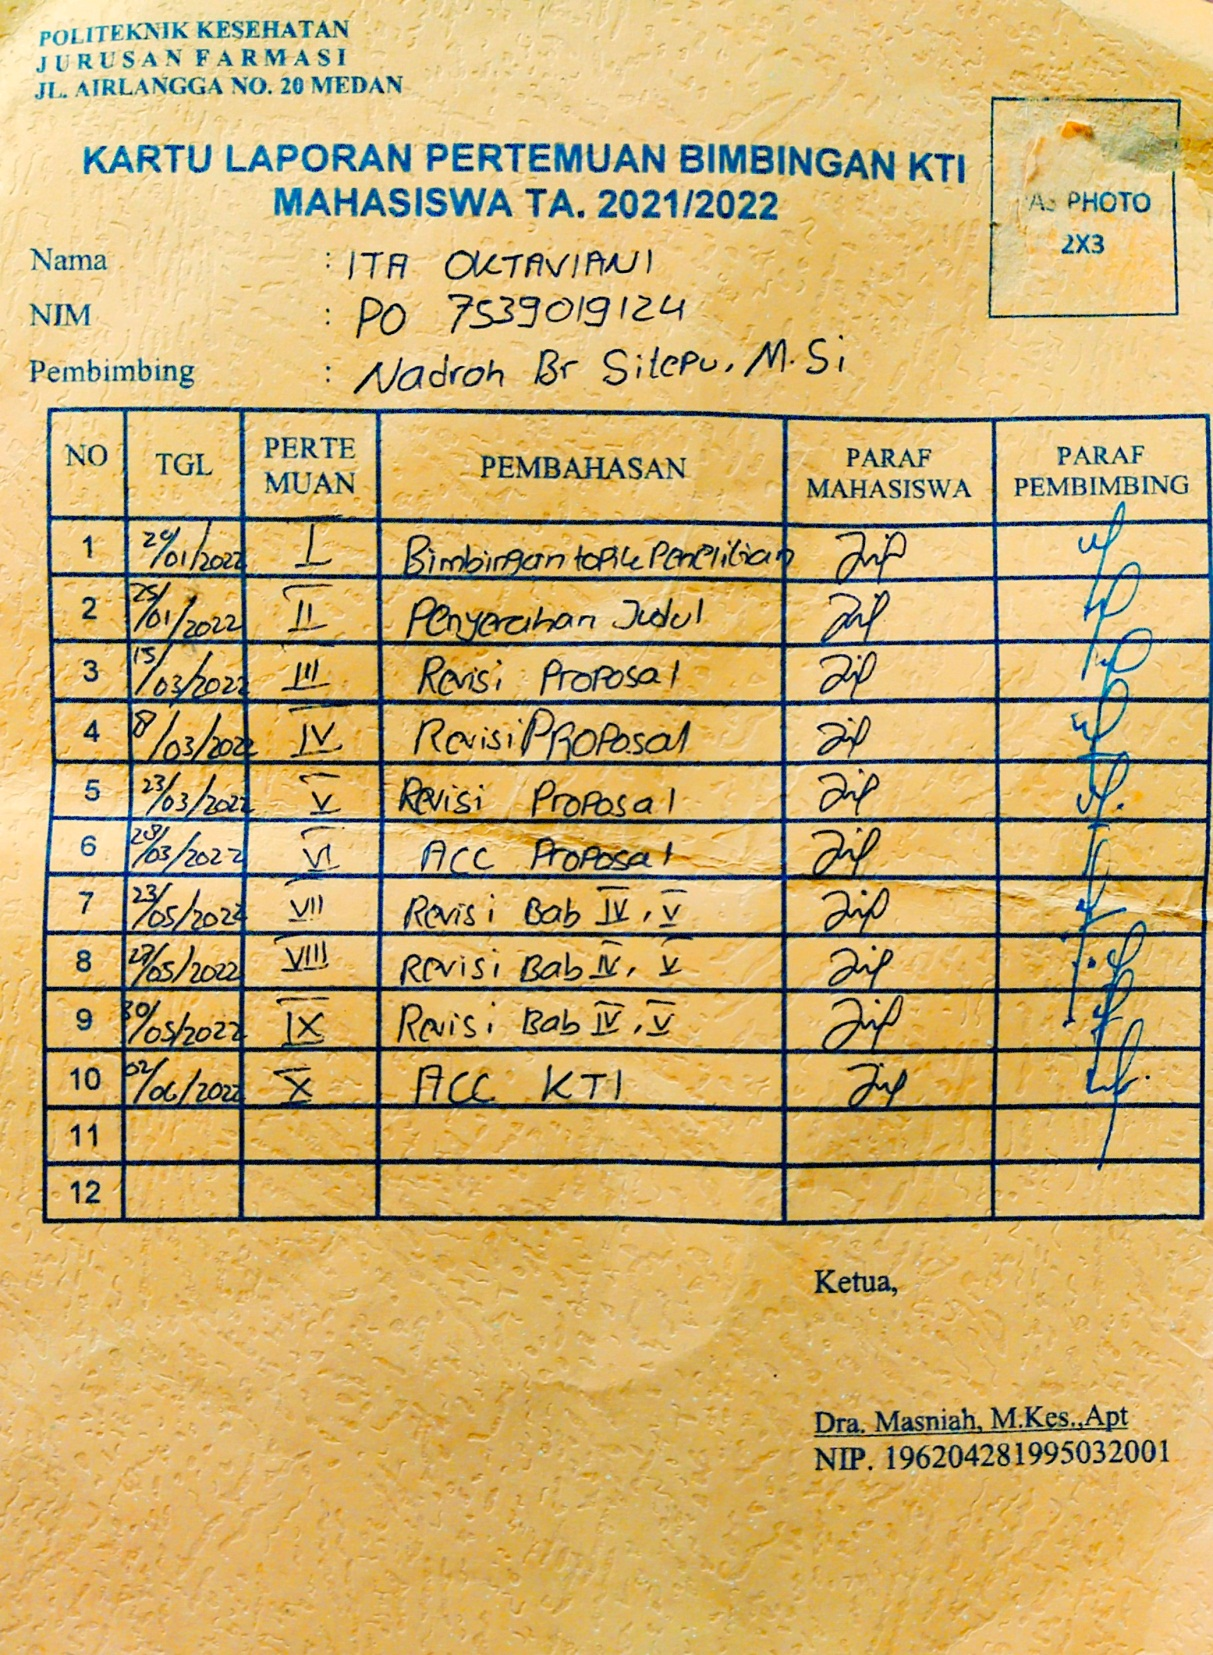 POLITEKNIK KESEHATAN
JURUSAN FARMASI
JL. AIRLANGGA NO. 20 MEDAN
KARTU LAPORAN PERTEMUAN BIMBINGAN KTI
MAHASISWA TA. 2021/2022
PHOTO
2X3
Nama : ITA OKTAVIANI
NIM : PO 7539019124
Pembimbing : Nadroh Br Sitepu, M.Si
NO TGL PERTE MUAN PEMBAHASAN PARAF MAHASISWA PARAF PEMBIMBING
1 /01/2022 I Bimbingan topik Penelitian
2 25/01/2022 II Penyerahan Judul
3 15/03/2022 III Revisi Proposal
4 /03/2022 IV Revisi PROPosal
5 23/03/2022 V Revisi Proposal
6 /03/2022 VI ACC Proposal
7 23/05/2022 VII Revisi Bab IV, V
8 /05/2022 VIII Revisi Bab IV, V
9 30/05/2022 IX Revisi Bab IV, V
10 02/06/2022 X ACC KTI
11
12
Ketua,
Dra. Masniah, M.Kes.,Apt
NIP. 196204281995032001